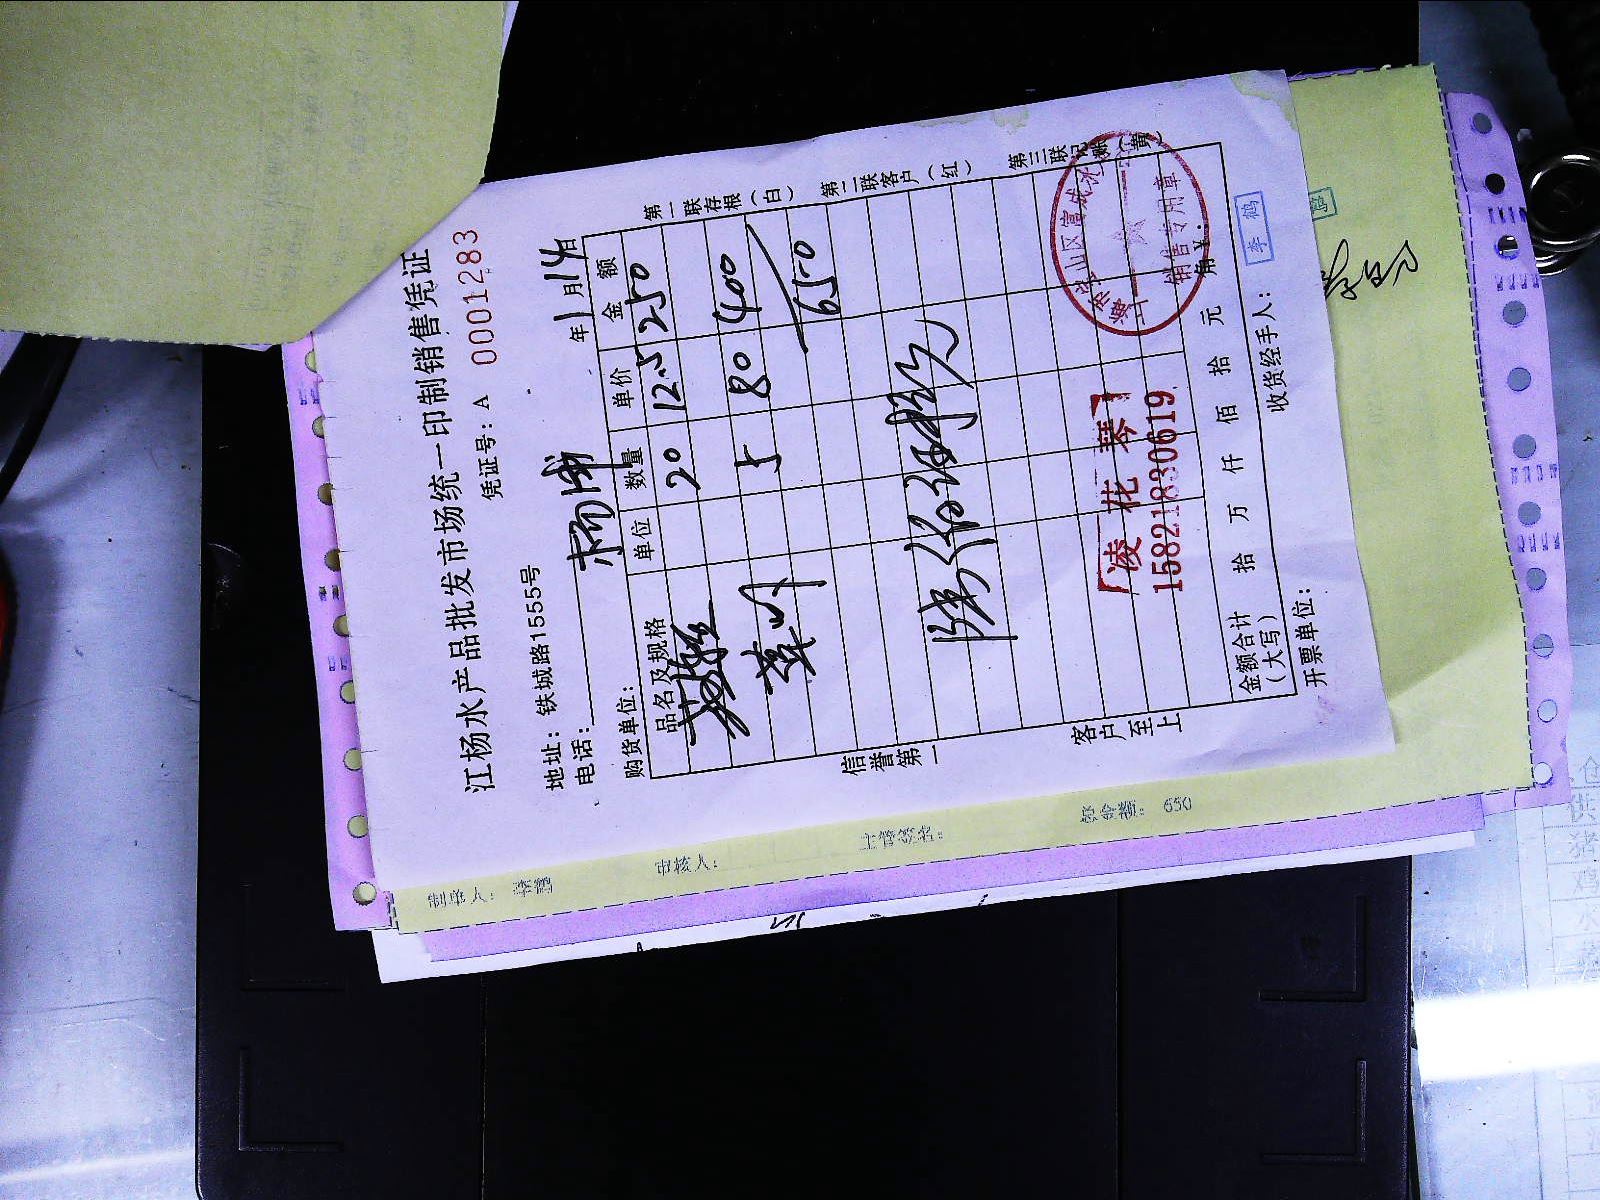 江杨水产品批发市场统一印制销售凭证
凭证号: A 0001283
地址: 铁城路1555号
电话:
年 1 月 14 日
购货单位: 杨浦
品名及规格 单位 数量 单价 金额
20 12.5 250
5 80 400
650
信誉第一
客户至上
第一联存根(白)
第二联客户(红)
第三联记账(黄)
凌花琴
15821830619
销售专用章
金额合计(大写) 拾 万 仟 佰 拾 元 角 ¥:
开票单位:
收货经手人:
李鹤
鹤
制单人:
审核人:
总金额: 650